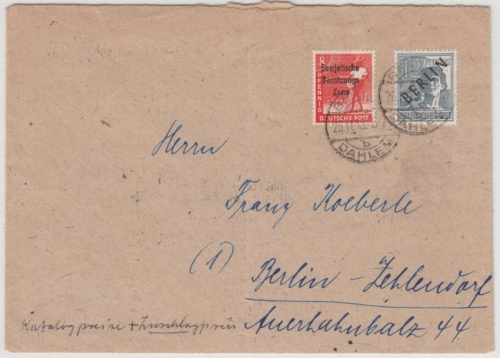 8
PFENNIG
Sowjetische
Besatzungs
Zone
DEUTSCHE POST
BERLIN
DAHLEM
b
DAHLEM
Herrn
Franz Koeberle
(1) Berlin-Zehlendorf
Auerhahnbalz 44
Katalogpreise + Zuschlagpreis